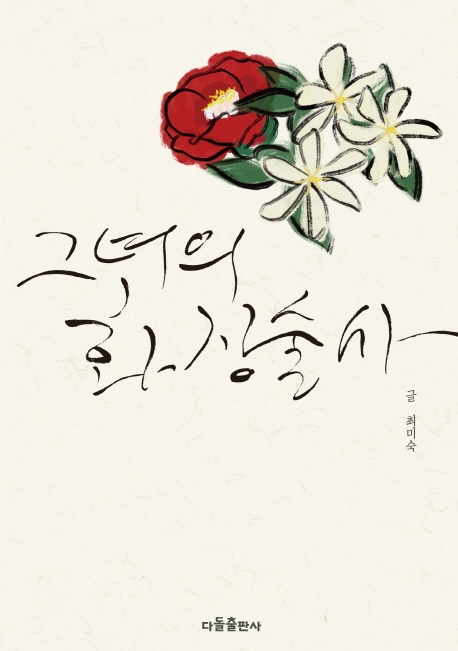 그녀의
화장술사
글 최미숙
다돌출판사